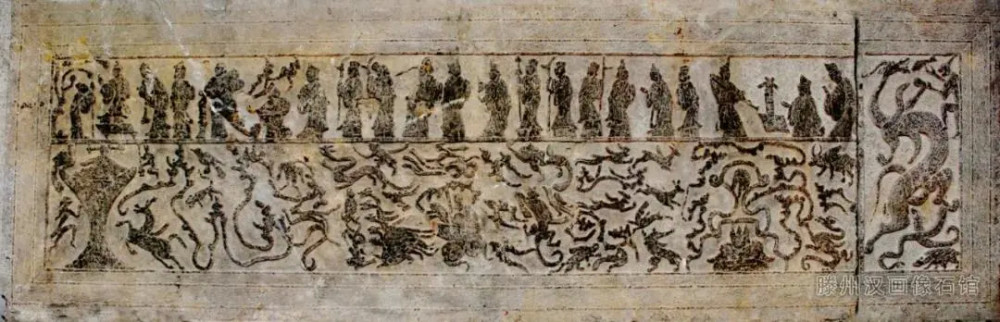 滕州汉画像石馆